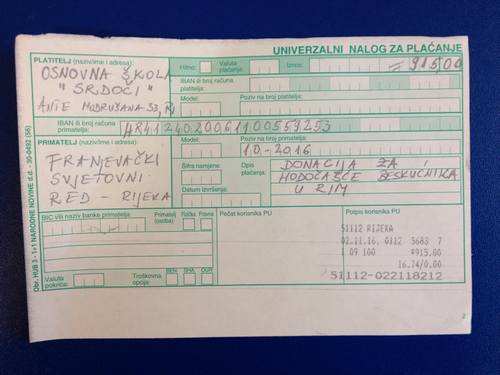 UNIVERZALNI NALOG ZA PLAĆANJE
PLATITELJ (naziv/ime i adresa):
Hitno:
Valuta plaćanja:
Iznos:
=915,00
OSNOVNA ŠKOLA
"SRDOČI"
ANTE MODRUŠANA 33, RI
IBAN ili broj računa platitelja:
Model:
Poziv na broj platitelja:
IBAN ili broj računa primatelja:
HR4124020061100559253
PRIMATELJ (naziv/ime i adresa):
Model:
Poziv na broj primatelja:
10-2016
FRANJEVAČKI
SVJETOVNI
RED - RIJEKA
Šifra namjene:
Opis plaćanja:
DONACIJA ZA
HODOČAŠĆE BESKUĆNIKA
U RIM
Datum izvršenja:
BIC i/ili naziv banke primatelja:
Primatelj (osoba):
Fizička
Pravna
Pečat korisnika PU
Potpis korisnika PU
51112 RIJEKA
02.11.16. 0112 5683 7
1 09 100 *915.00
16.74/0.00
51112-022118212
Valuta pokrića:
Troškovna opcija:
BEN
SHA
OUR
Obr. HUB 3 - 1+1 NARODNE NOVINE d.d. - 30-0492 (56)
2